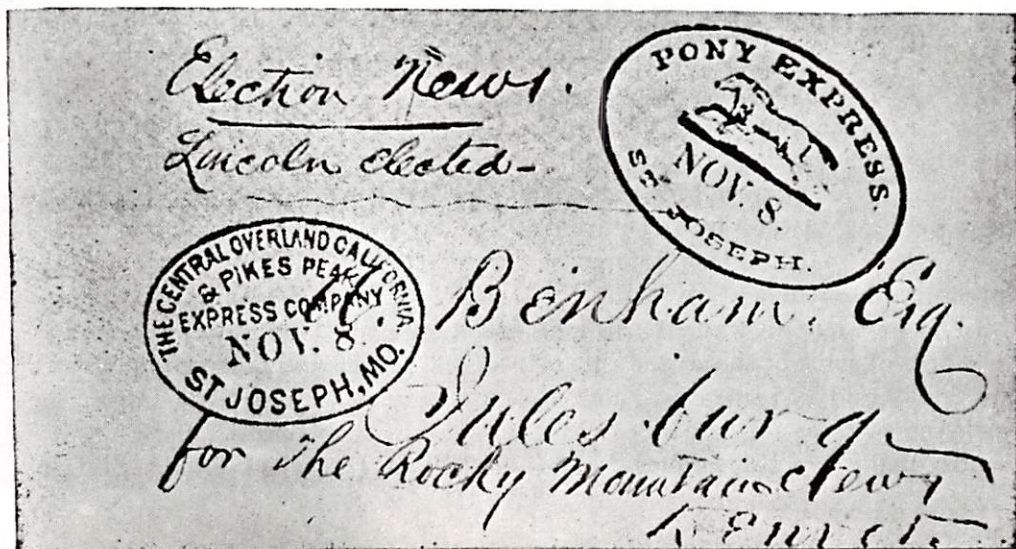 Election News.
Lincoln elected-
PONY EXPRESS.
NOV. 8.
ST JOSEPH.
THE CENTRAL OVERLAND CALIFORNIA.
& PIKES PEAK
EXPRESS COMPANY
NOV. 8
ST JOSEPH, MO.
Benham. Esq.
Julesburg
for The Rocky Mountain News
Denver